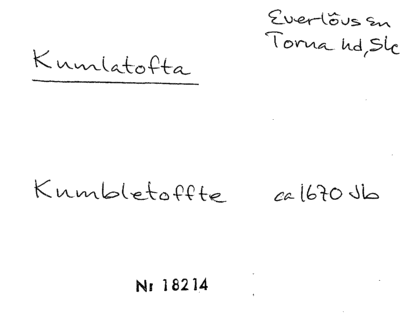 Everlövs sn
Torna hd, Sk
Kumlatofta
Kumbletoffte ca 1670 Jb
Nr 18214